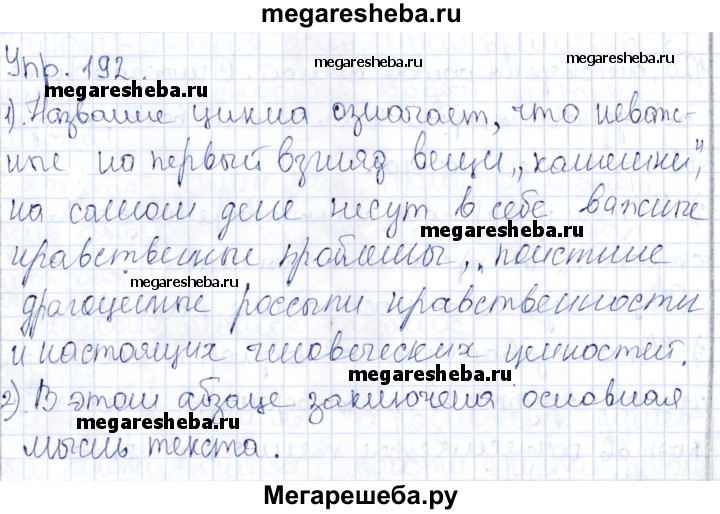 megaresheba.ru
Упр. 192.
megaresheba.ru
megaresheba.ru
megaresheba.ru
1) Название цикла означает, что неваж-
ные на первый взгляд вещи „камешки",
на самом деле несут в себе важные
megaresheba.ru
нравственные проблемы, „поистине
megaresheba.ru
драгоценные россыпи нравственности
и настоящих человеческих ценностей.
megaresheba.ru
2) В этом абзаце заключена основная
megaresheba.ru
мысль текста.
Мегарешеба.ру